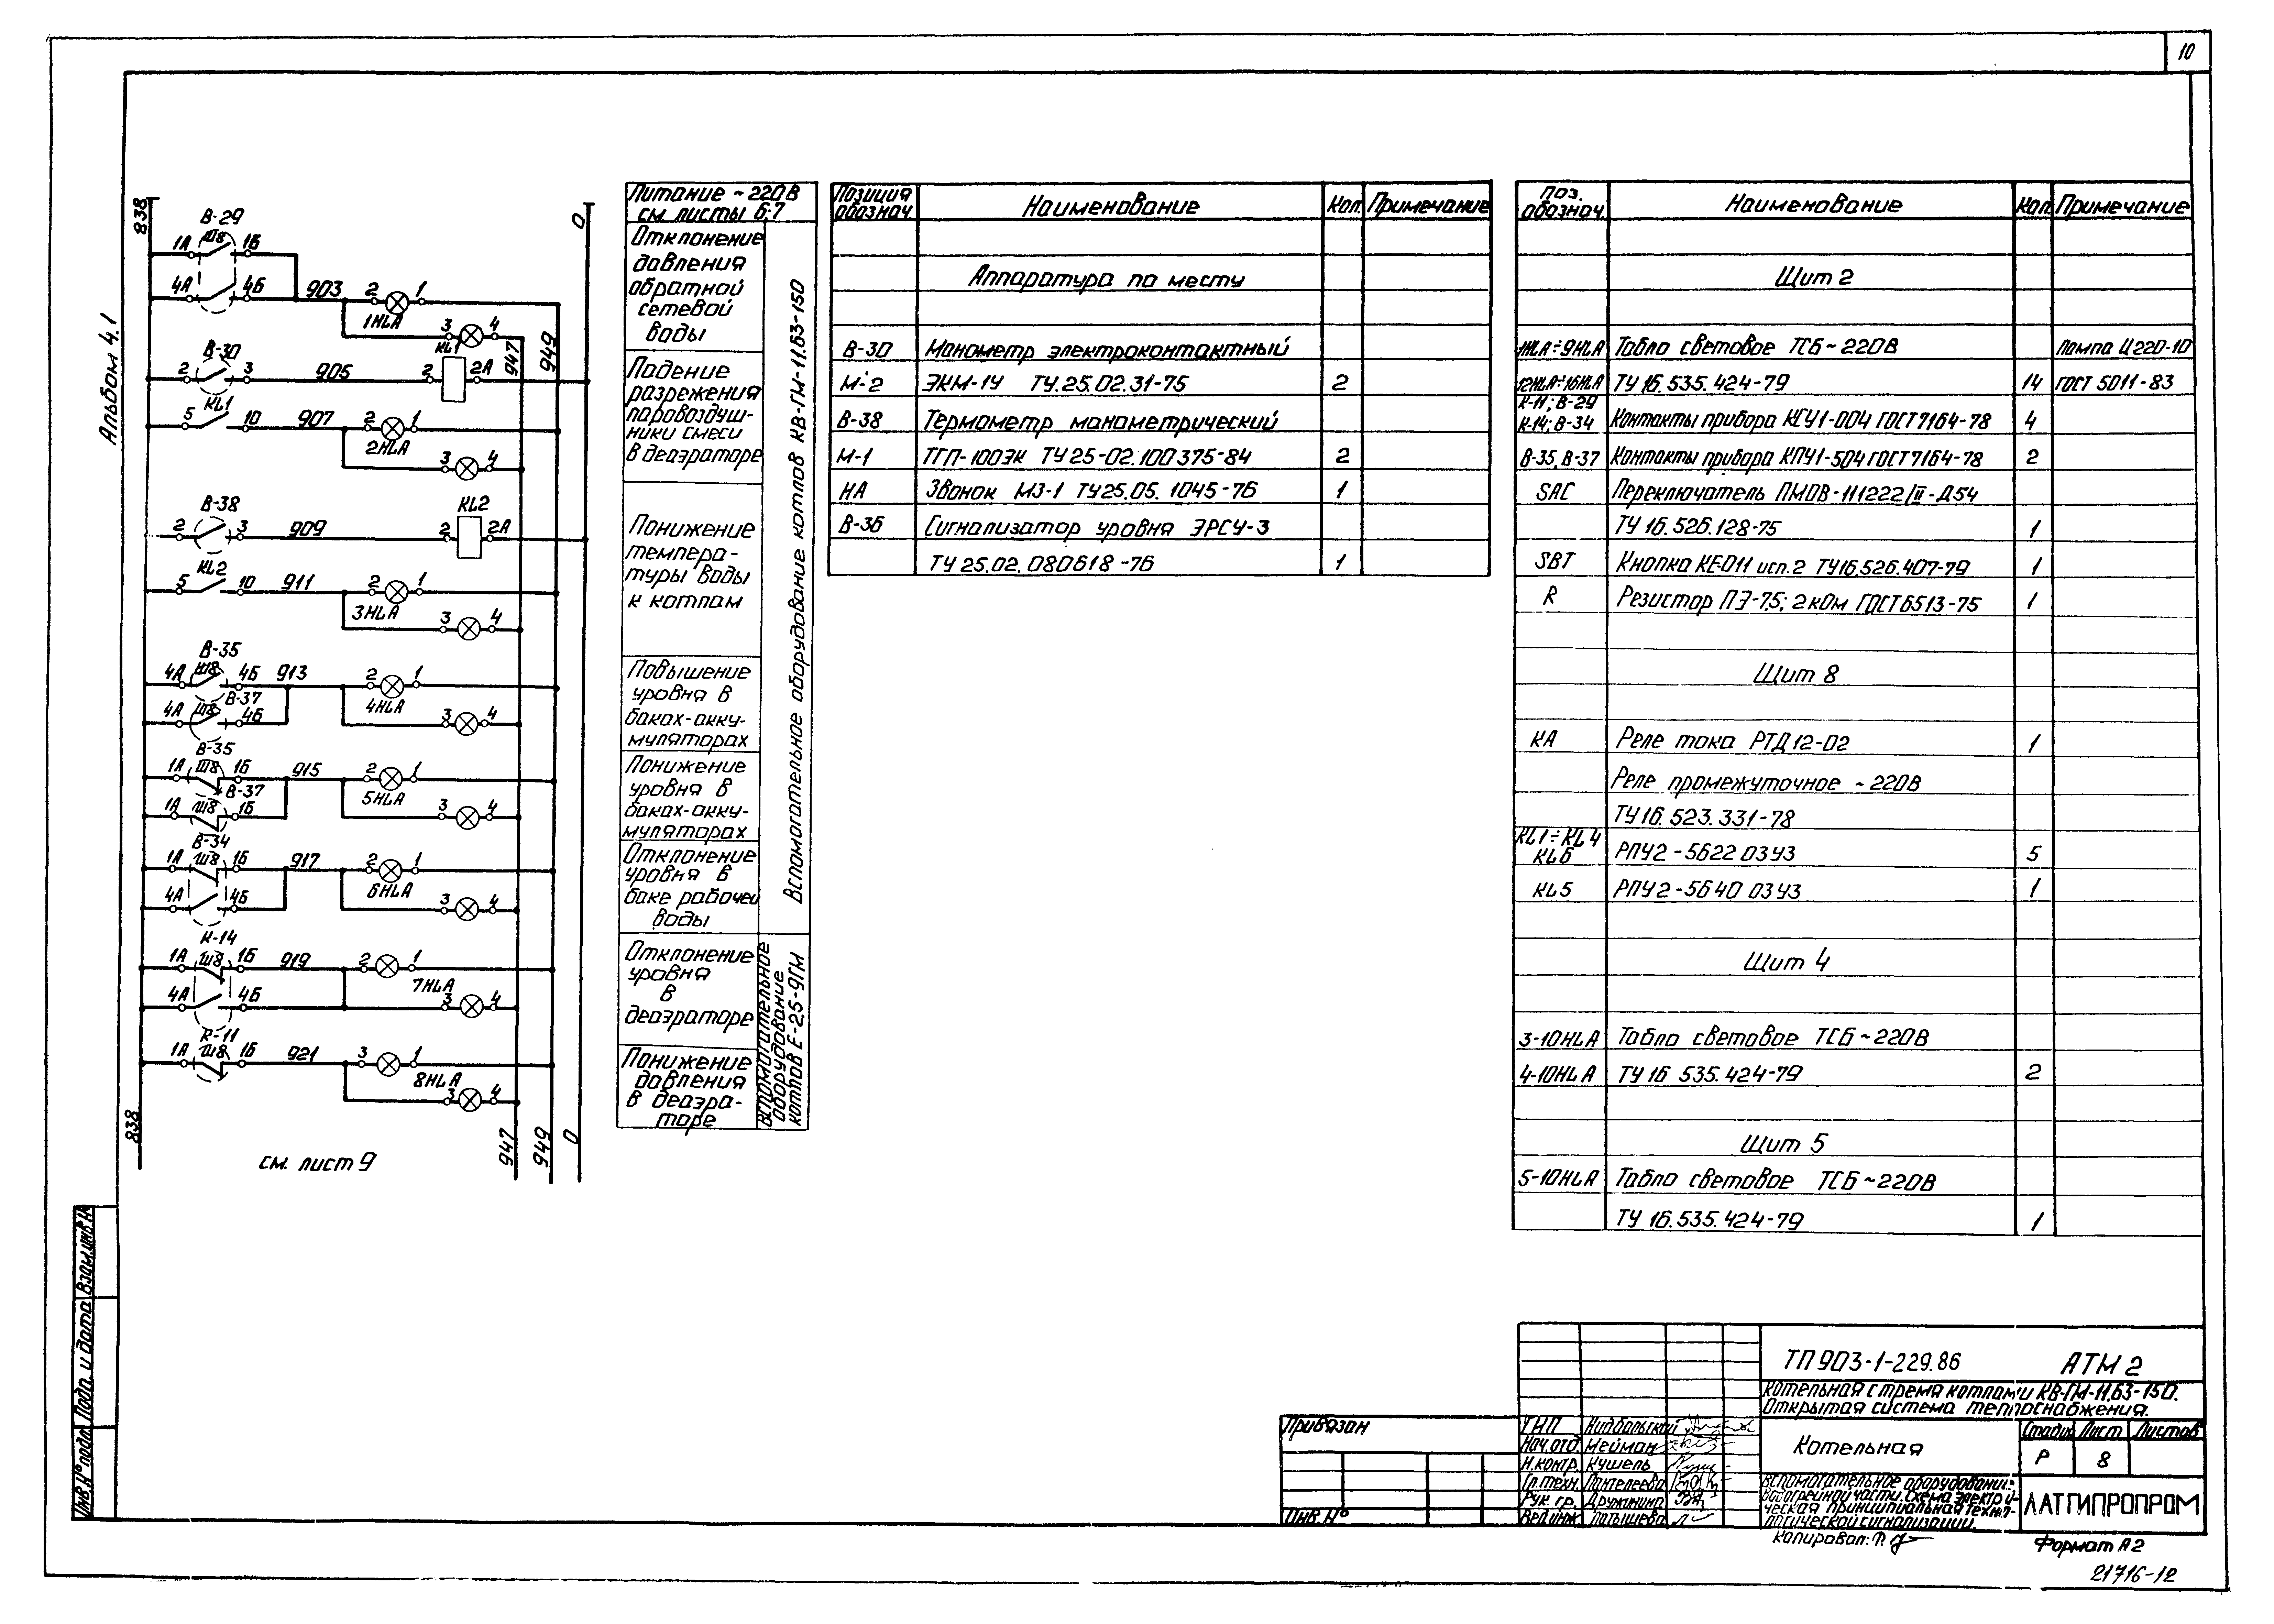 10
Альбом 4.1
838
В-29
Ш8
1А 1Б
4А 4Б
903
2 1
1HLA
3 4
947
949
0
В-30
2 3
905
KL1
2 2А
KL1
5 10
907
2 1
2HLA
3 4
В-38
2 3
909
KL2
2 2А
KL2
5 10
911
2 1
3HLA
3 4
В-35
4А Ш8 4Б
913
2 1
4HLA
В-37
4А Ш8 4Б
3 4
В-35
1А Ш8 1Б
915
2 1
5HLA
В-37
1А Ш8 1Б
3 4
В-34
1А Ш8 1Б
917
2 1
6HLA
4А 4Б
3 4
К-14
1А Ш8 1Б
919
2 1
7HLA
4А 4Б
3 4
К-11
1А Ш8 1Б
921
3 1
8HLA
3 4
838
947
949
0
см. лист 9
Питание ~220В
см. листы 6;7
Отклонение
давления
обратной
сетевой
воды
Падение
разрежения
паровоздуш-
ники смеси
в деаэраторе
Понижение
темпера-
туры воды
к котлам
Повышение
уровня в
баках-акку-
муляторах
Понижение
уровня в
баках-акку-
муляторах
Отклонение
уровня в
баке рабочей
воды
Вспомогательное оборудование котлов КВ-ГМ-11.63-150
Отклонение
уровня
в
деаэраторе
Понижение
давления
в деаэра-
торе
Вспомогательное
оборудование
котлов Е-25-9ГМ
Позиция обознач. Наименование Кол. Примечание
Аппаратура по месту
В-30 Манометр электроконтактный
М-2 ЭКМ-1У ТУ.25.02.31-75 2
В-38 Термометр манометрический
М-1 ТГП-100ЭК ТУ 25-02.100375-84 2
НА Звонок МЗ-1 ТУ25.05.1045-76 1
В-36 Сигнализатор уровня ЭРСУ-3
ТУ 25.02.080618-76 1
Поз. обознач. Наименование Кол. Примечание
Щит 2
1HLA÷9HLA Табло световое ТСБ ~220В Лампа Ц220-10
12HLA÷16HLA ТУ 16.535.424-79 14 ГОСТ 5011-83
К-11; В-29
К-14; В-34 Контакты прибора КСУ1-004 ГОСТ7164-78 4
В-35, В-37 Контакты прибора КПУ1-504 ГОСТ7164-78 2
SAC Переключатель ПМОВ-111222/II-Д54
ТУ 16.526.128-75 1
SBT Кнопка КЕ-011 исп.2 ТУ16.526.407-79 1
R Резистор ПЭ-7,5; 2кОм ГОСТ6513-75 1
Щит 8
КА Реле тока РТД12-02 1
Реле промежуточное ~220В
ТУ16.523.331-78
KL1÷KL4
KL6 РПУ2-562203У3 5
KL5 РПУ2-564003У3 1
Щит 4
3-10HLA Табло световое ТСБ ~220В
4-10HLA ТУ 16 535.424-79 2
Щит 5
5-10HLA Табло световое ТСБ ~220В
ТУ 16.535.424-79 1
Инв.№ подл. Подп. и дата Взам.инв.№
Привязан
Инв.№
ТП 903-1-229.86 АТМ 2
Котельная с тремя котлами КВ-ГМ-11.63-150.
Открытая система теплоснабжения.
ГИП Нидбальский
Нач.отд. Нейман
Н.контр. Кушель
Гл.техн. Пантелеева
Рук. гр. Дружинина
Вед.инж. Латышева
Котельная
Стадия Лист Листов
Р 8
Вспомогательное оборудование
водогрейной части. Схема электри-
ческая принципиальная техно-
логической сигнализации.
ЛАТГИПРОПРОМ
Копировал:
Формат А2
21716-12